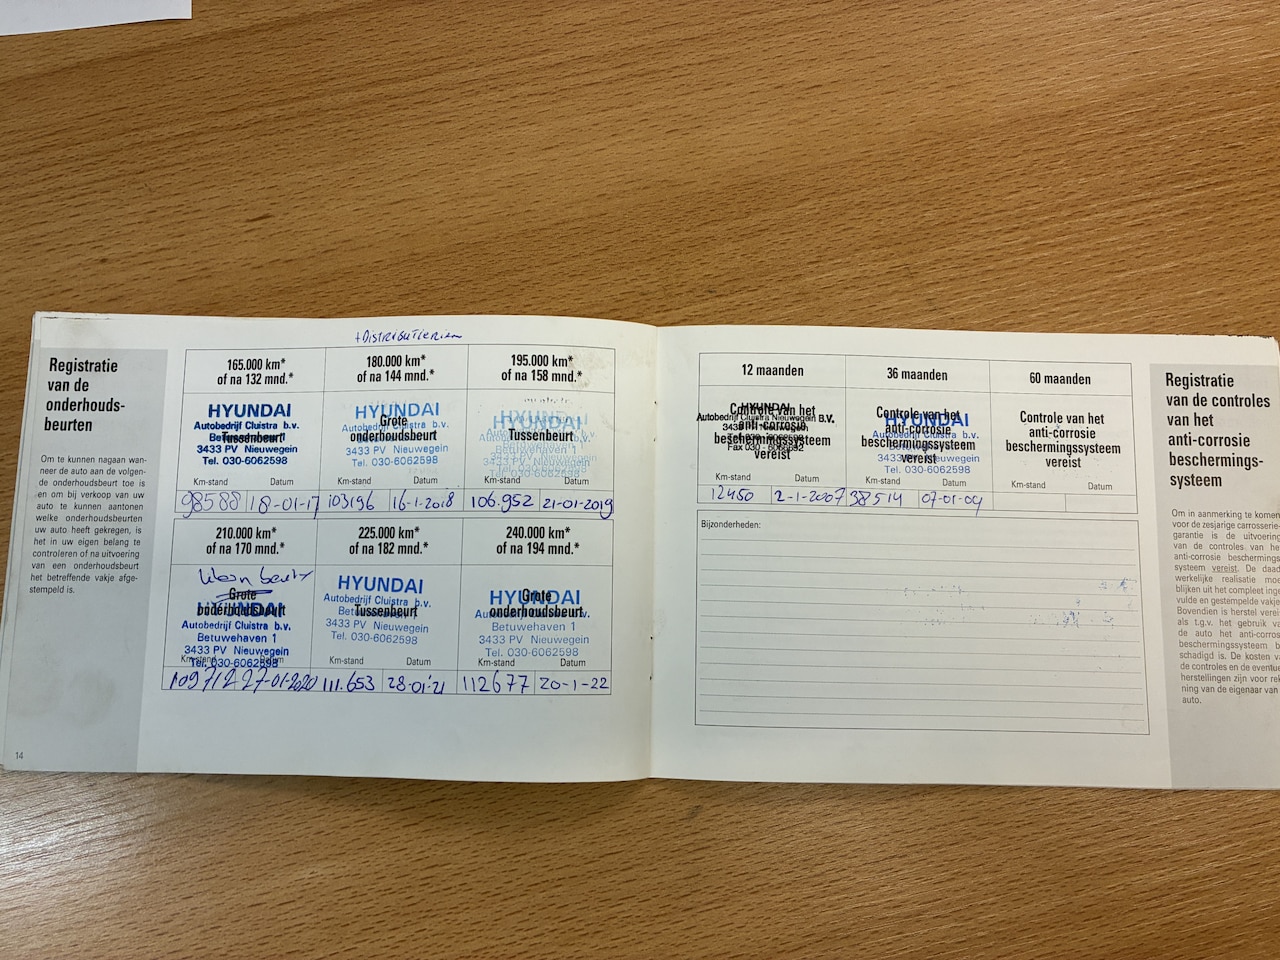 Registratie
van de
onderhouds-
beurten
Om te kunnen nagaan wan-
neer de auto aan de volgen-
de onderhoudsbeurt toe is
en om bij verkoop van uw
auto te kunnen aantonen
welke onderhoudsbeurten
uw auto heeft gekregen, is
het in uw eigen belang te
controleren of na uitvoering
van een onderhoudsbeurt
het betreffende vakje afge-
stempeld is.
14
+DISTRIBUTIERIEM
165.000 km*
of na 132 mnd.*
HYUNDAI
Autobedrijf Cluistra b.v.
Tussenbeurt
3433 PV Nieuwegein
Tel. 030-6062598
Km-stand Datum
98588 18-01-17
180.000 km*
of na 144 mnd.*
HYUNDAI
Grote
Autobedrijf Cluistra b.v.
onderhoudsbeurt
3433 PV Nieuwegein
Tel. 030-6062598
Km-stand Datum
103196 16-1-2018
195.000 km*
of na 158 mnd.*
HYUNDAI
Tussenbeurt
Betuwehaven 1
3433 PV Nieuwegein
Km-stand Datum
106.952 21-01-2019
210.000 km*
of na 170 mnd.*
klein beurt
Grote
onderhoudsbeurt
HYUNDAI
Autobedrijf Cluistra b.v.
Betuwehaven 1
3433 PV Nieuwegein
Km-stand Datum
Tel. 030-6062598
109712 27-01-2020
225.000 km*
of na 182 mnd.*
HYUNDAI
Autobedrijf Cluistra b.v.
Tussenbeurt
3433 PV Nieuwegein
Tel. 030-6062598
Km-stand Datum
111.653 28-01-21
240.000 km*
of na 194 mnd.*
HYUNDAI
Grote
onderhoudsbeurt
Autobedrijf Cluistra b.v.
Betuwehaven 1
3433 PV Nieuwegein
Tel. 030-6062598
Km-stand Datum
112677 20-1-22
12 maanden
HYUNDAI
Controle van het
Autobedrijf Cluistra Nieuwegein B.V.
anti-corrosie
beschermingssysteem
vereist
Km-stand Datum
12450 2-1-2007
36 maanden
Controle van het
HYUNDAI
anti-corrosie
Autobedrijf Cluistra b.v.
beschermingssysteem
3433 PV Nieuwegein
vereist
Tel. 030-6062598
Km-stand Datum
38514 07-01-09
60 maanden
Controle van het
anti-corrosie
beschermingssysteem
vereist
Km-stand Datum
Bijzonderheden:
Registratie
van de controles
van het
anti-corrosie
beschermings-
systeem
Om in aanmerking te komen
voor de zesjarige carrosserie-
garantie is de uitvoering
van de controles van het
anti-corrosie beschermings-
systeem vereist. De daad-
werkelijke realisatie moet
blijken uit het compleet inge-
vulde en gestempelde vakje.
Bovendien is herstel vereist
als t.g.v. het gebruik van
de auto het anti-corrosie
beschermingssysteem be-
schadigd is. De kosten van
de controles en de eventuele
herstellingen zijn voor reke-
ning van de eigenaar van de
auto.